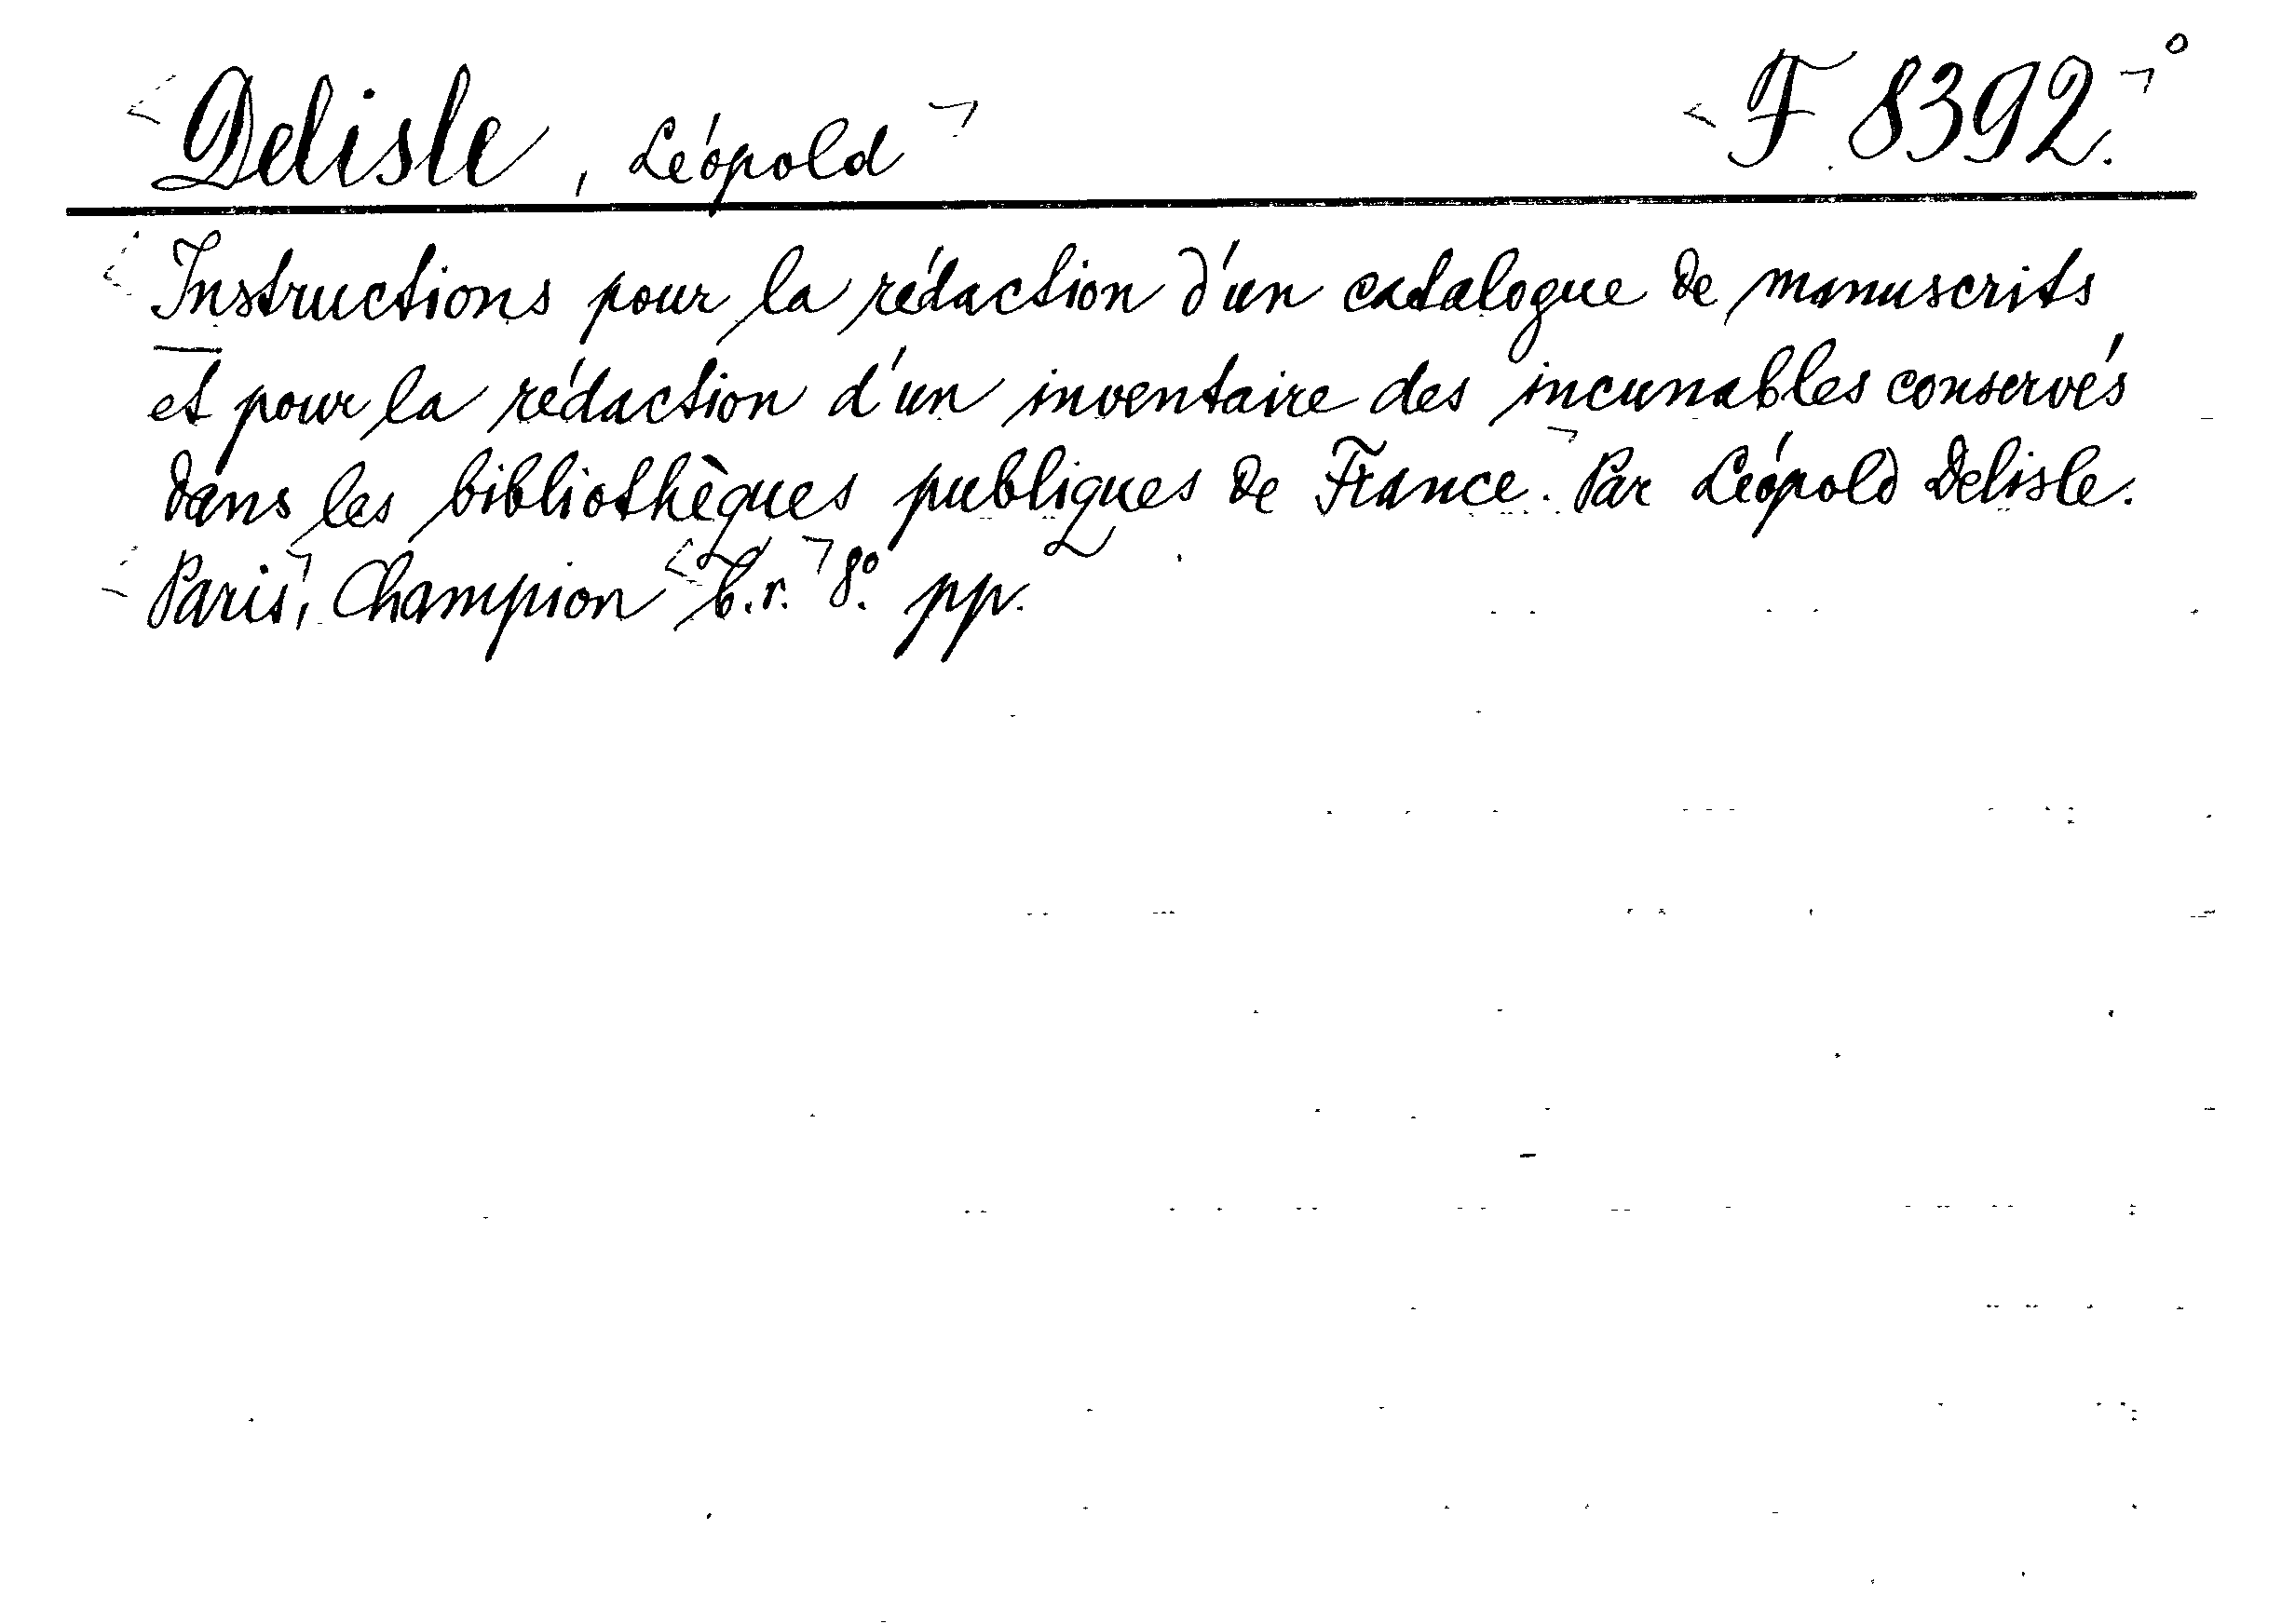 Delisle, Léopold F 8392.
Instructions pour la rédaction d'un catalogue de manuscrits
et pour la rédaction d'un inventaire des incunables conservés
dans les bibliothèques publiques de France. Par Léopold Delisle.
Paris, Champion b.r. 8º. pp.